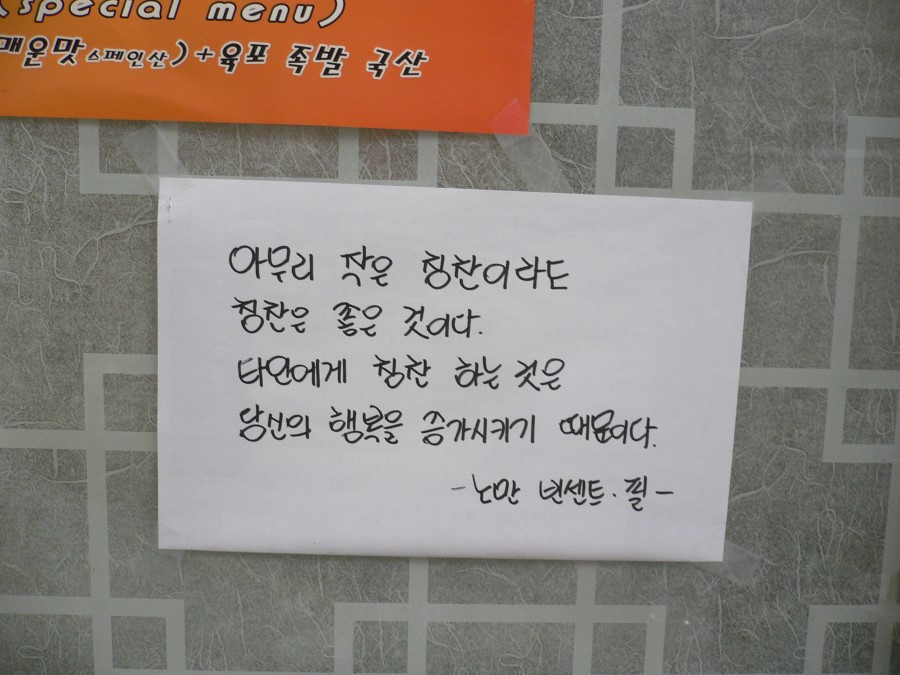 (special menu)
매운맛 스페인산)+육포 족발 국산
아무리 작은 칭찬이라도
칭찬은 좋은 것이다.
타인에게 칭찬 하는 것은
당신의 행복을 증가시키기 때문이다.
-노만 빈센트·필-